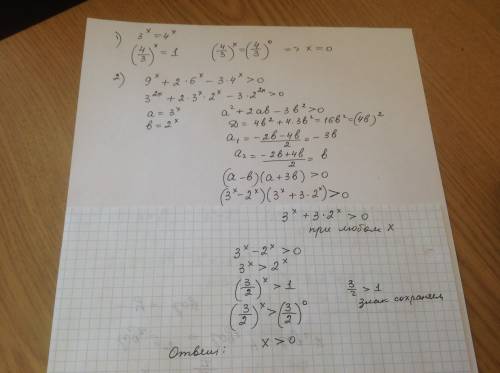 1) 3^x = 4^x
(4/3)^x = 1 (4/3)^x = (4/3)^0 => x = 0
2) 9^x + 2·6^x − 3·4^x > 0
3^2x + 2·3^x·2^x − 3·2^2x > 0
a = 3^x a² + 2ab − 3b² > 0
b = 2^x D = 4b² + 4·3b² = 16b² = (4b)²
a₁ = (−2b−4b)/2 = −3b
a₂ = (−2b+4b)/2 = b
(a−b)(a+3b) > 0
(3^x − 2^x)(3^x + 3·2^x) > 0
3^x + 3·2^x > 0
при любом x
3^x − 2^x > 0
3^x > 2^x
(3/2)^x > 1 3/2 > 1
знак сохраняем
(3/2)^x > (3/2)^0
Ответ: x > 0